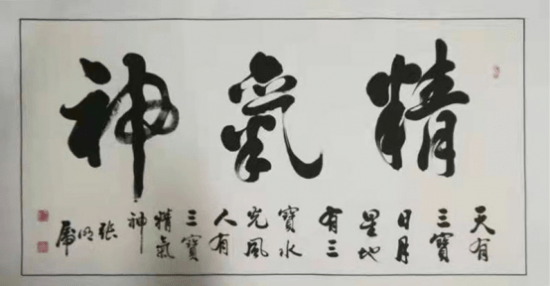 精氣神
天有
三寶
日月
星地
有三
寶水
風
人有
三寶
精氣
神
張